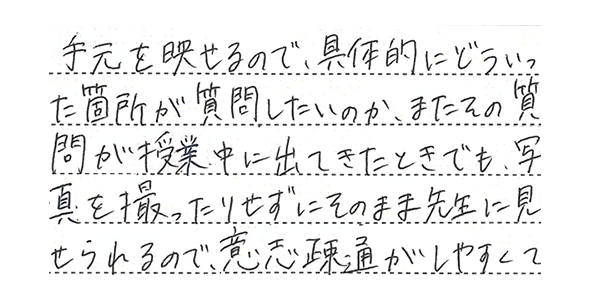 手元を映せるので、具体的にどういっ
た箇所が質問したいのか、またその質
問が授業中に出てきたときでも、写
真を撮ったりせずにそのまま先生に見
せられるので、意志疎通がしやすくて